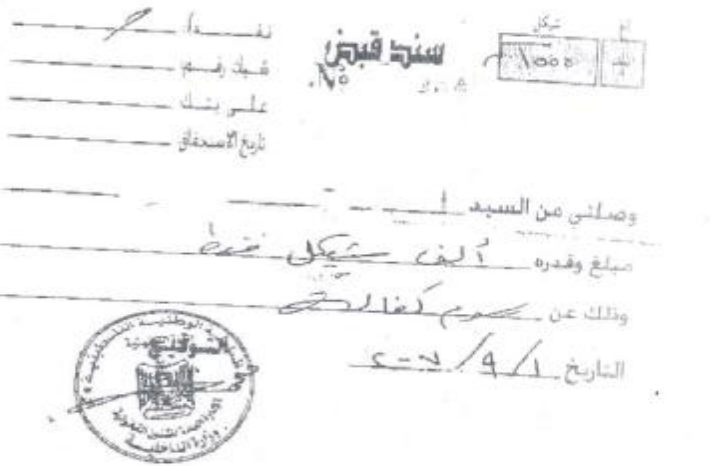 أغ شيكل
١٥٥٥
سند قبض
Nº.
نقــدا
شيك رقــم
علــى بنــك
تاريخ الاستحقاق
وصلني من السيد
مبلغ وقدره ألف شيكل فقط
وذلك عن رسوم كفالة
التاريخ ١/٩/٢٠٠٧
التوقيع
السلطة الوطنية الفلسطينية
وزارة الداخلية